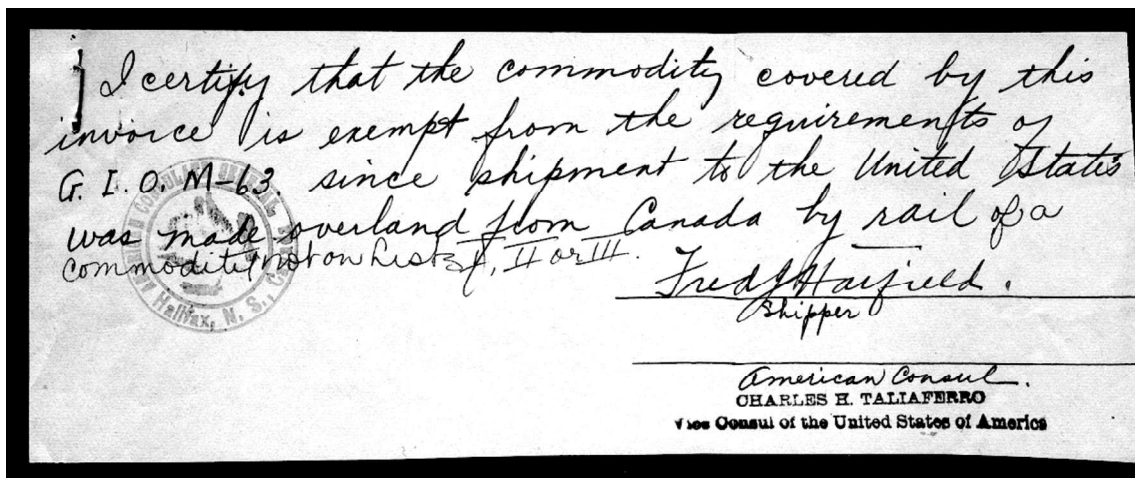 I certify that the commodity covered by this
invoice is exempt from the requirements of
G. I. O. M-63. since shipment to the United States
was made overland from Canada by rail of a
commodity not on Lists I, II or III.
Fred J Hatfield.
Shipper
American Consul.
CHARLES H. TALIAFERRO
Vice Consul of the United States of America
AMERICAN CONSULATE GENERAL
Halifax, N. S.,